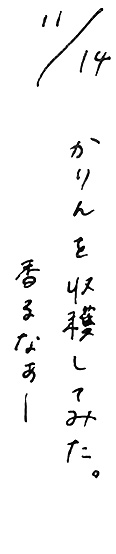 11/14
かりんを収穫してみた。
香るなぁー